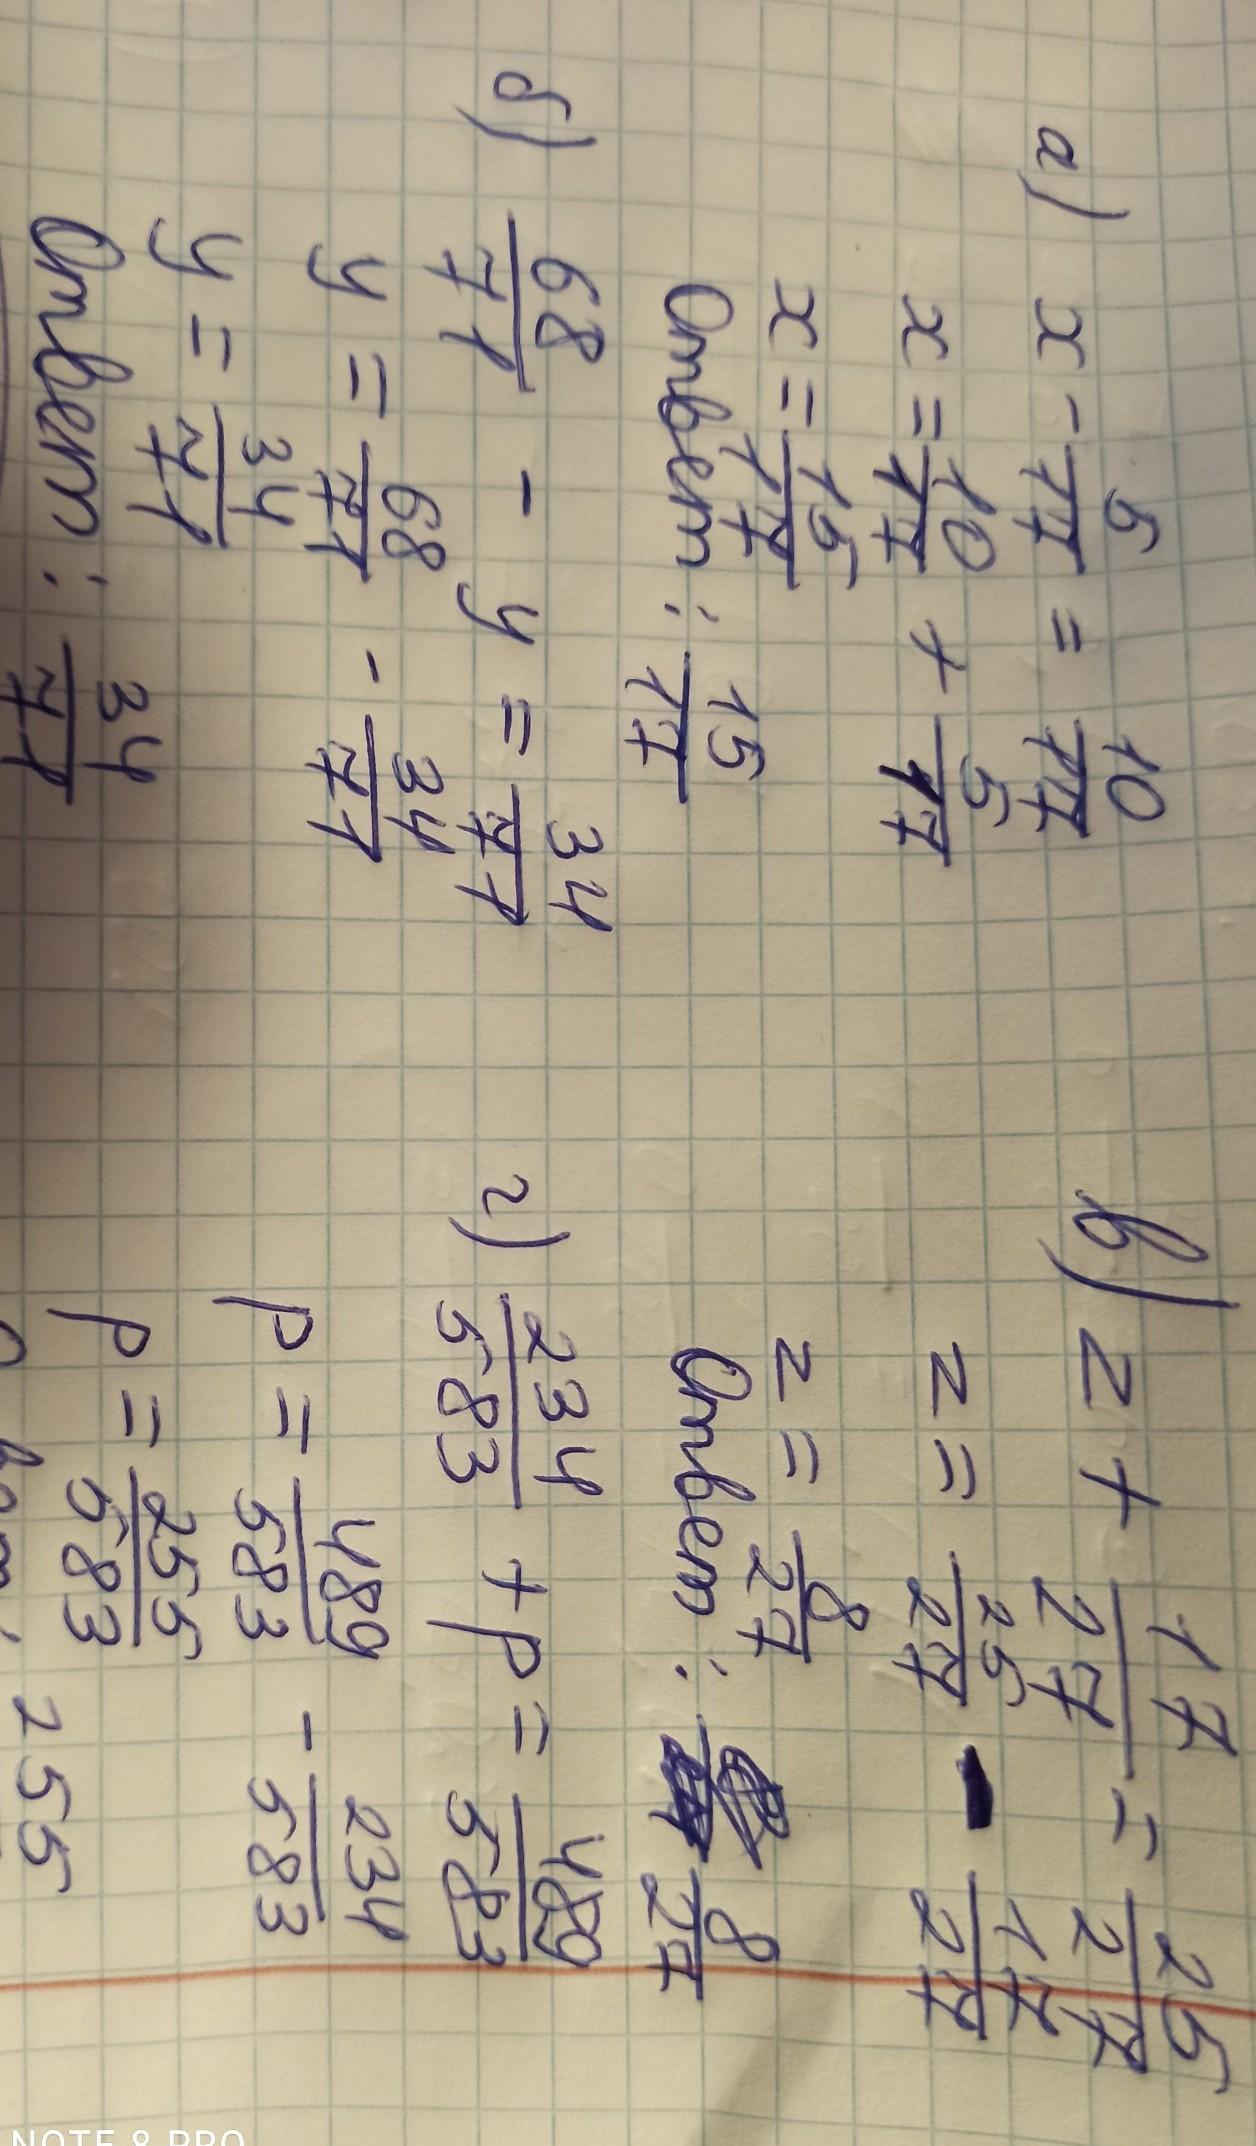 а) x - 5/17 = 10/17
x = 10/17 + 5/17
x = 15/17
Ответ: 15/17
б) 68/71 - y = 34/71
y = 68/71 - 34/71
y = 34/71
Ответ: 34/71
в) z + 17/27 = 25/27
z = 25/27 - 17/27
z = 8/27
Ответ: 8/27
г) 234/583 + p = 489/583
p = 489/583 - 234/583
p = 255/583
255
NOTE 8 PRO